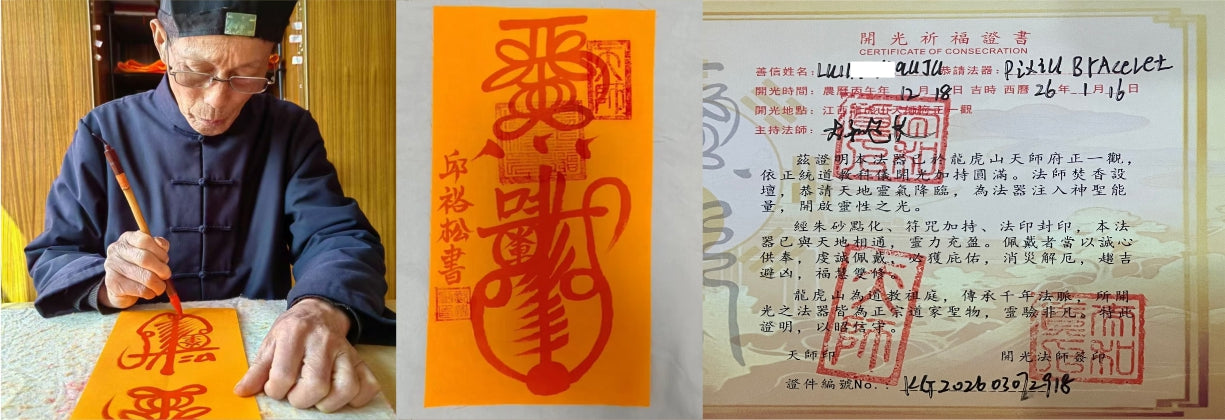 邱裕松書
開光祈福證書
CERTIFICATE OF CONSECRATION
善信姓名: 恭請法器: Pixiu Bracelet
開光時間: 農曆丙午年 12月18日 吉時 西曆 26年 1月16日
開光地點: 江西龍虎山天師府正一觀
主持法師:
茲證明本法器已於龍虎山天師府正一觀,
依正統道教科儀開光加持圓滿。法師焚香設
壇,恭請天地靈氣降臨,為法器注入神聖能
量,開啟靈性之光。
經朱砂點化、符咒加持、法印封印,本法
器已與天地相通,靈力充盈。佩戴者當以誠心
供奉,虔誠佩戴,必獲庇佑,消災解厄,趨吉
避凶,福慧雙修。
龍虎山為道教祖庭,傳承千年法脈,所開
光之法器皆為正宗道家聖物,靈驗非凡。特此
證明,以昭信守。
天師印 開光法師簽印
證件編號No.: KG202603072918